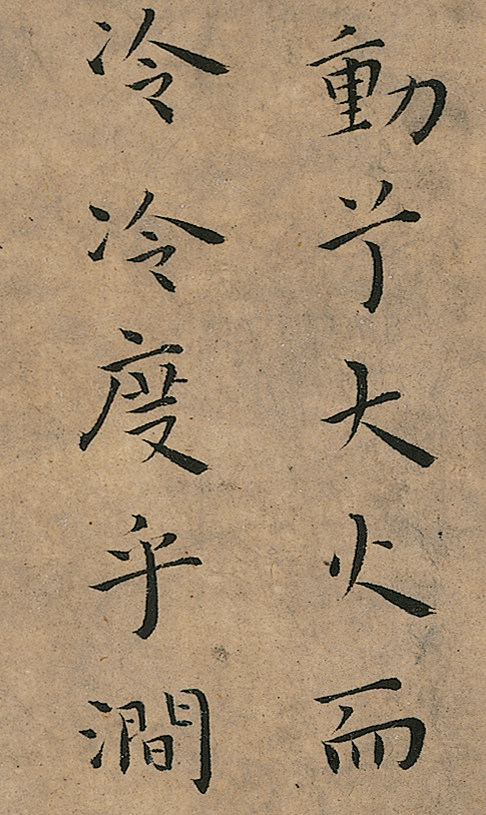 動兮大火而
冷冷度乎澗